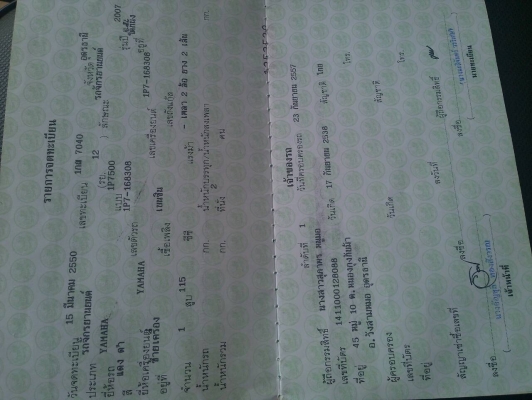 รายการจดทะเบียน
วันจดทะเบียน 15 มีนาคม 2550 เลขทะเบียน 7040 จังหวัด อุดรธานี
ประเภท รถจักรยานยนต์ (รย. 12 ) ลักษณะ รถจักรยานยนต์
ยี่ห้อรถ YAMAHA แบบ 1P7500 รุ่นปี ค.ศ. 2007
สี แดง ดำ เลขตัวรถ 1P7-168308 อยู่ที่
ยี่ห้อเครื่องยนต์ YAMAHA เลขเครื่องยนต์ 1P7-168308
อยู่ที่ ซ้ายเครื่อง เชื้อเพลิง เบนซิน เลขถังแก๊ส
จำนวน 1 สูบ 115 ซีซี แรงม้า - เพลา 2 ล้อ ยาง 2 เส้น
น้ำหนักรถ กก. น้ำหนักบรรทุก/น้ำหนักลงเพลา กก.
น้ำหนักรวม กก. ที่นั่ง 2 คน
เจ้าของรถ
ลำดับที่ 1 วันที่ครอบครองรถ 23 กันยายน 2557
ผู้ถือกรรมสิทธิ์ นางสาวสุภาพร
เลขที่บัตร 1411000128088 วันเกิด 17 กันยายน 2536 สัญชาติ ไทย
ที่อยู่ 45 หมู่ 10 ต. หนองกุงทับม้า โทร.
อ. วังสามหมอ จ. อุดรธานี
ผู้ครอบครอง
เลขที่บัตร วันเกิด สัญชาติ
ที่อยู่ โทร.
สัญญาเช่าซื้อเลขที่ ลงวันที่ ผู้ถือกรรมสิทธิ์
ลงชื่อ ลงชื่อ
เจ้าหน้าที่ นายทะเบียน